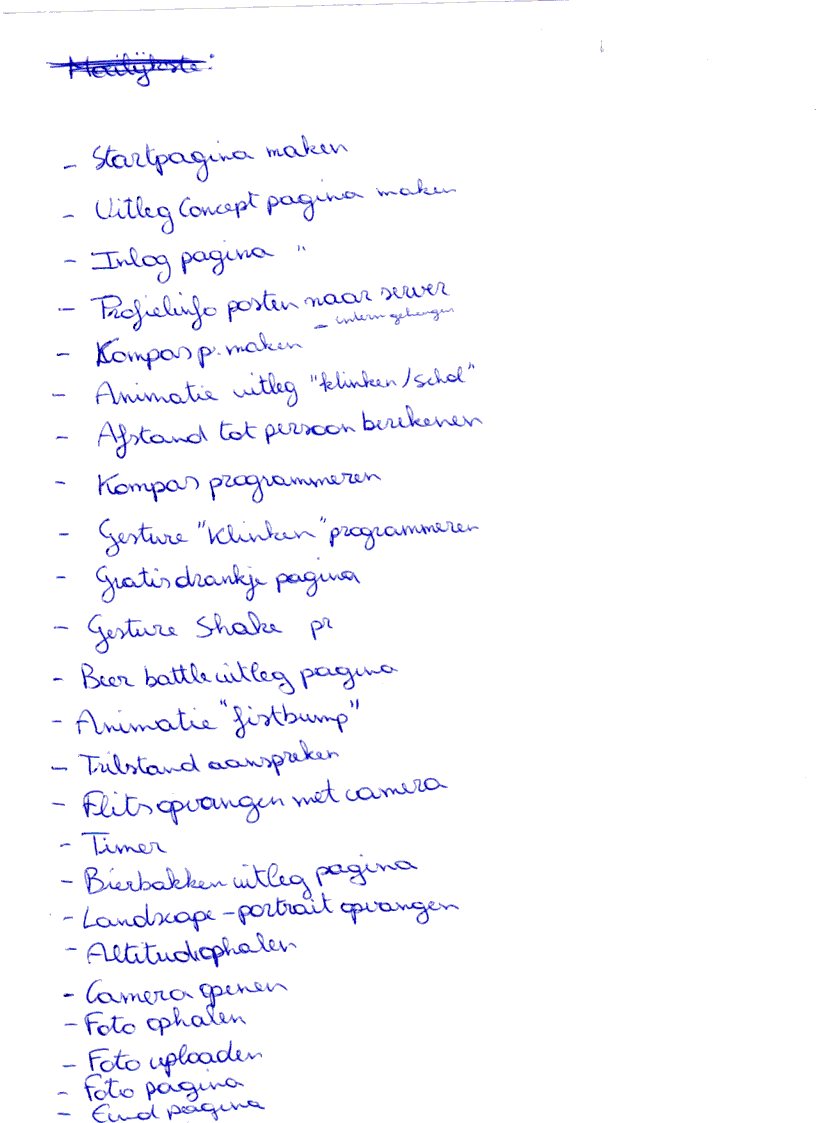 Moeilijkste:
- Startpagina maken
- Uitleg Concept pagina maken
- Inlog pagina "
- Profielinfo posten naar server
- Kompas p. maken -
- Animatie uitleg "klinken/schol"
- Afstand tot persoon berekenen
- Kompas programmeren
- Gesture "Klinken" programmeren
- Gratis drankje pagina
- Gesture Shake pr
- Beer battle uitleg pagina
- Animatie "fistbump"
- Trilstand aanspreken
- Flits opvangen met camera
- Timer
- Bierbakken uitleg pagina
- Landscape - portrait opvangen
- Altitud ophalen
- Camera openen
- Foto ophalen
- Foto uploaden
- Foto pagina
- Eind pagina